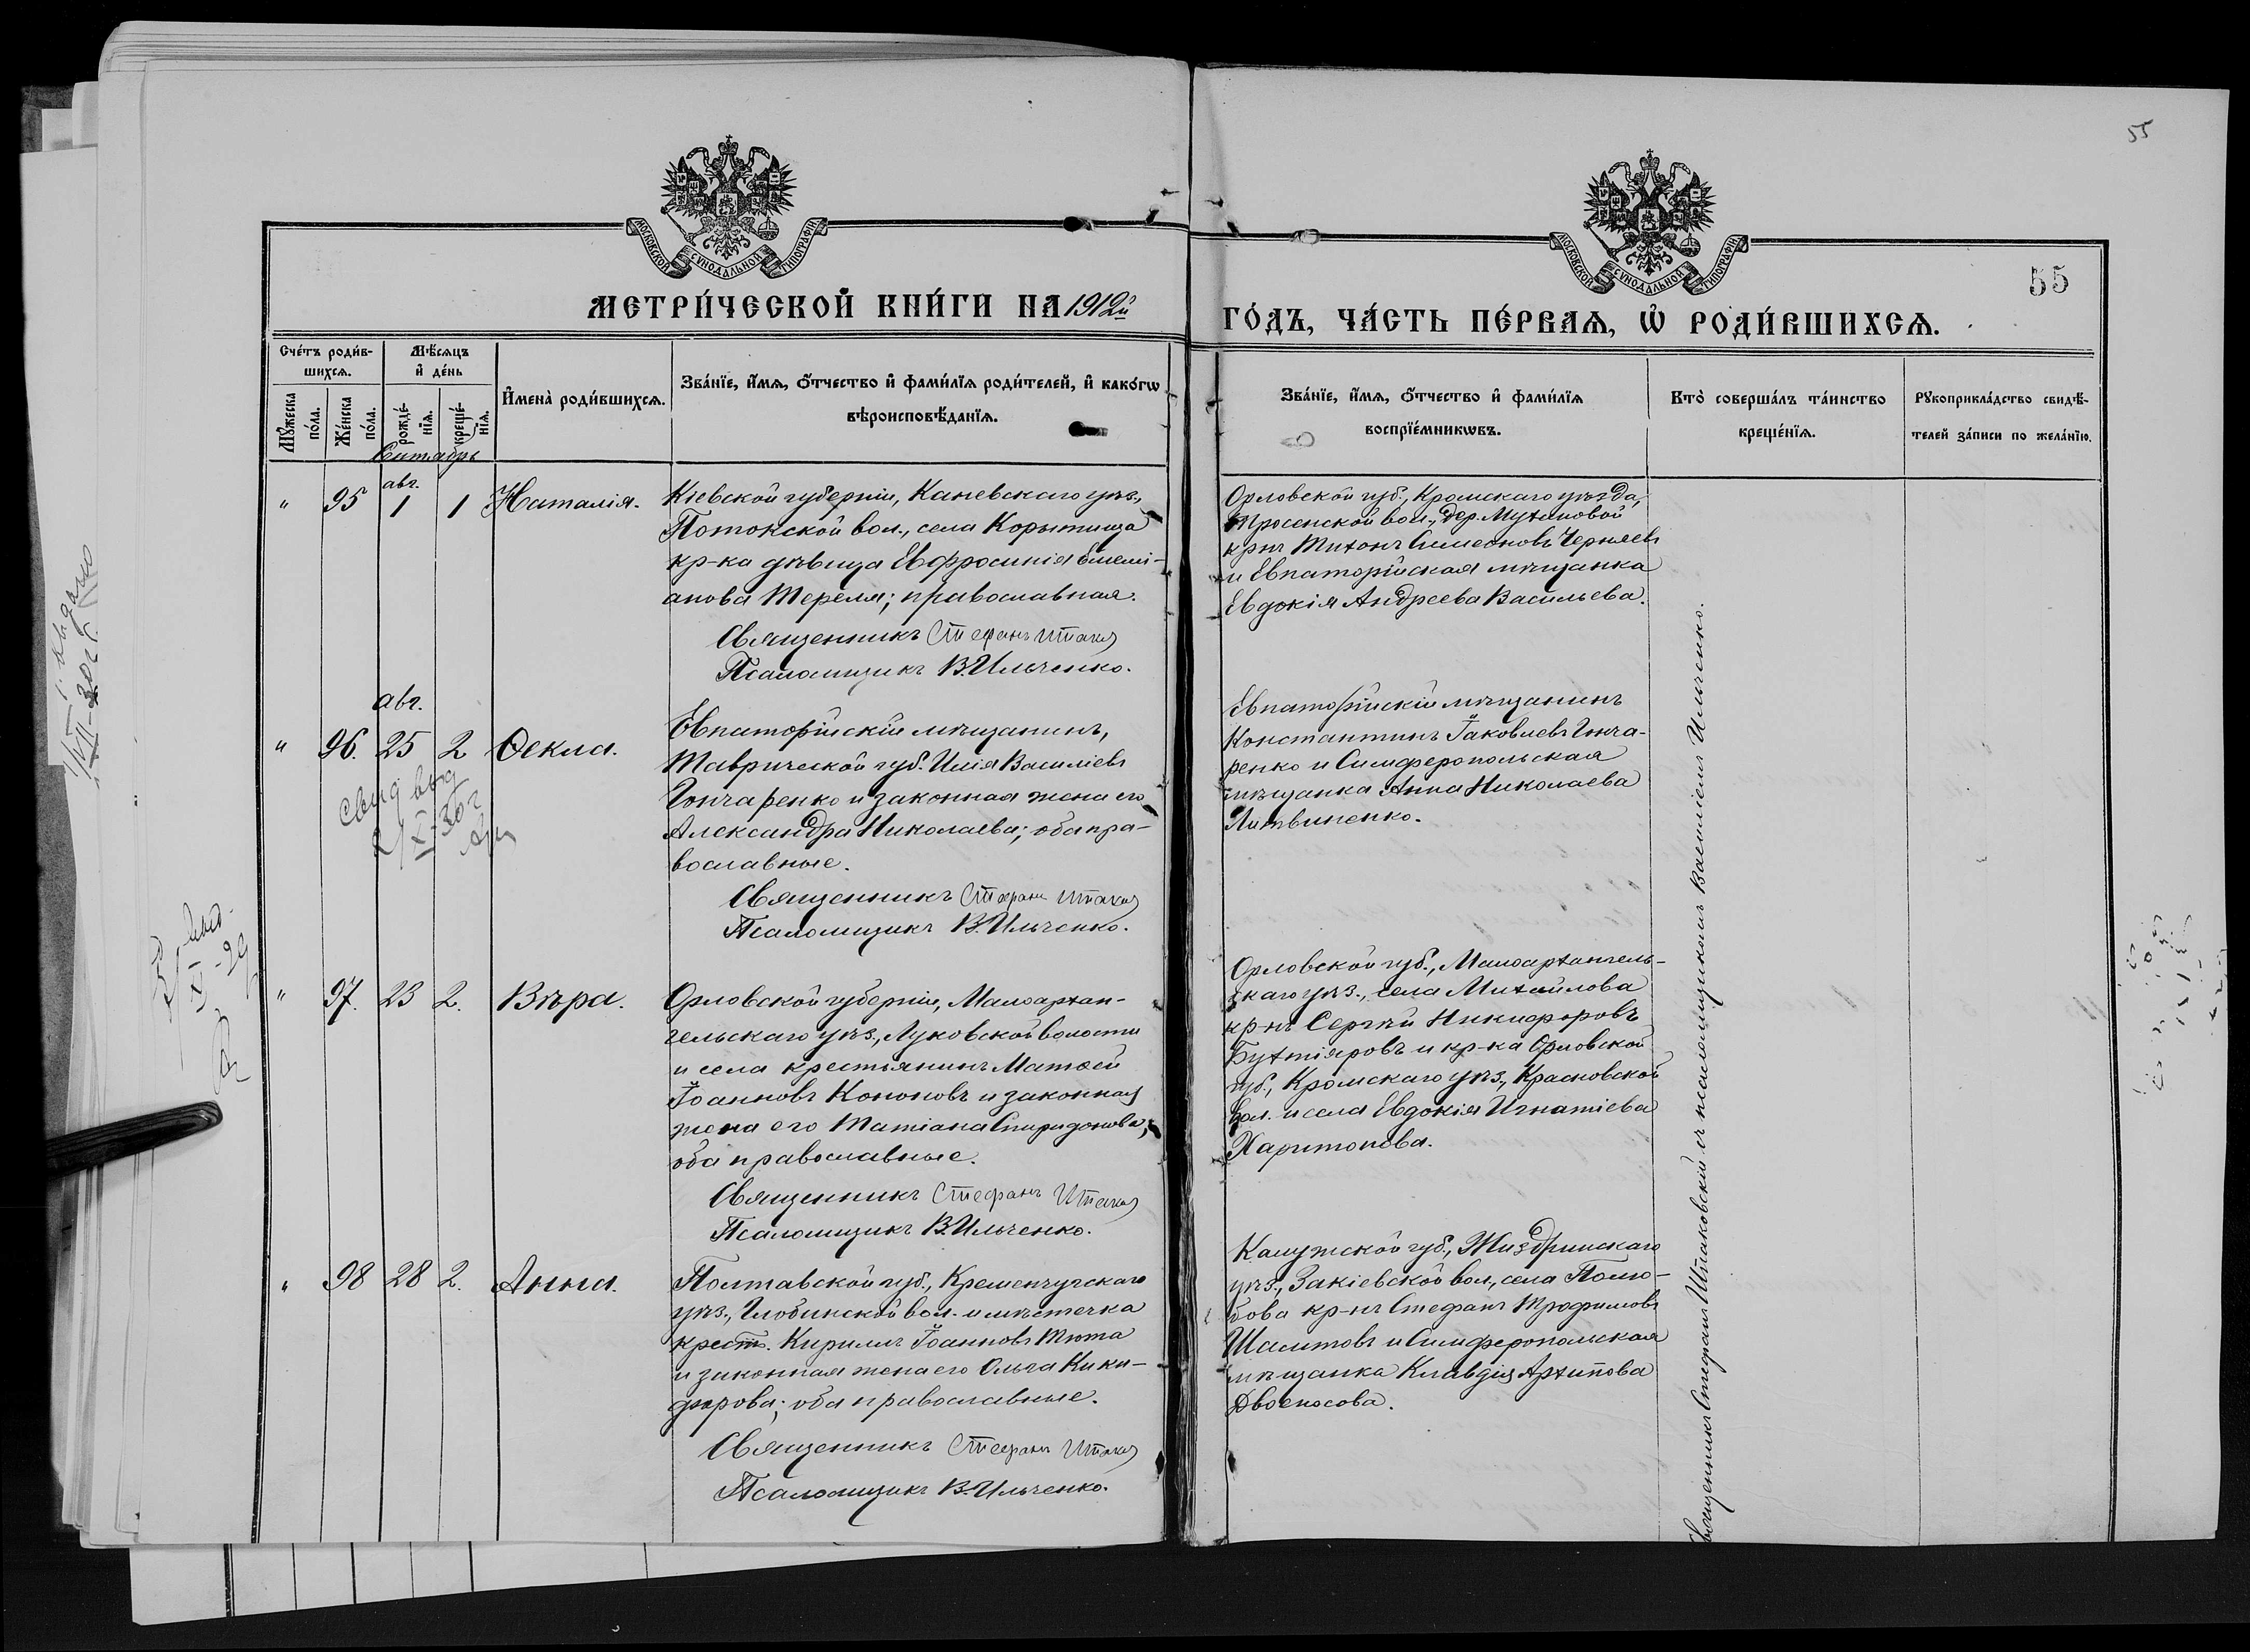 55
МОСКОВСКОЙ СѴНОДАЛЬНОЙ ТИПОГРАФІИ
МОСКОВСКОЙ СѴНОДАЛЬНОЙ ТИПОГРАФІИ
55
МЕТРИ́ЧЕСКОЙ КНИ́ГИ НА 1912й
ГО́ДЪ, ЧА́СТЬ ПЕ́РВАѦ, Ѡ РОДИ́ВШИХСѦ.
Сче́тъ роди́в-
шихсѧ.
Мꙋжеска
по́ла.
Же́нска
по́ла.
Мѣ́сѧцъ
и де́нь
рожде́-
нїѧ.
креще́-
нїѧ.
И҆мена̀ роди́вшихсѧ.
Зва́нїе, и҆́мѧ, ѻ҆́тчество и҆ фами́лїѧ роди́телей, и҆ како́гѡ
вѣроисповѣ́данїѧ.
Зва́нїе, и҆́мѧ, ѻ҆́тчество и҆ фами́лїѧ
воспрїе́мникѡвъ.
Кто̀ соверша́лъ та́инство
креще́нїѧ.
Рꙋкоприкла́дство свидѣ́-
телей за́писи по жела́нїю.
Сентябрь
авг.
" 95 1 1 Наталія.
Кіевской губерніи, Каневскаго уѣз.,
Потокской вол., села Корытища
кр-ка дѣвица Евфросинія Емели-
анова Тереля; православная.
Священникъ Стефанъ
Псаломщикъ В. Ильченко.
Орловской губ., Кромскаго уѣзда,
Тросенской вол., дер. Мухановой
кр-нъ Тихонъ Симеоновъ Черняевъ
и Евпаторійская мѣщанка
Евдокія Андреева Васильева.
авг.
" 96. 25 2 Ѳекла.
свид выд
2/X-30 г
Евпаторійскій мѣщанинъ,
Таврической губ. Илія Василіевъ
Гончаренко и законная жена его
Александра Николаева; оба пра-
вославные.
Священникъ Стефанъ
Псаломщикъ В. Ильченко.
Евпаторійскій мѣщанинъ
Константинъ Іаковлевъ Гонча-
ренко и Симферопольская
мѣщанка Анна Николаева
Литвиненко.
" 97. 23 2. Вѣра.
Орловской губерніи, Малоархан-
гельскаго уѣз., Луковской волости
и села крестьянинъ Матѳей
Іоанновъ Кононовъ и законная
жена его Татіана Спиридонова;
оба православные.
Священникъ Стефанъ
Псаломщикъ В. Ильченко.
Орловской губ., Малоархангель-
скаго уѣз., села Михайлова
кр-нъ Сергѣй Никифоровъ
Бухтіяровъ и кр-ка Орловской
губ., Кромскаго уѣз., Красновской
вол. и села Евдокія Игнатіева
Харитонова.
" 98 28 2. Анна.
Полтавской губ., Кременчугскаго
уѣз., Глобинской вол. и мѣстечка
крест. Кириллъ Іоанновъ Тюта
и законная жена его Ольга Ники-
форова; оба православные.
Священникъ Стефанъ
Псаломщикъ В. Ильченко.
Калужской губ., Жиздринскаго
уѣз., Закіевской вол., села Полю-
бова кр-нъ Стефанъ Трофимовъ
Шамтовъ и Симферопольская
мѣщанка Клавдія Архипова
Двоеносова.
Священникъ Стефанъ Штаковскій съ псаломщикомъ Василіемъ Ильченко.